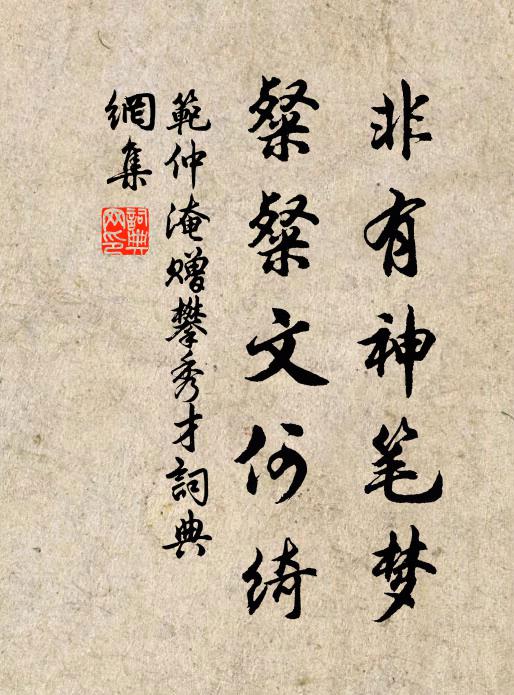 非有神笔梦
粲粲文何绮
範仲淹赠攀秀才詞典
網集
詞典
网印